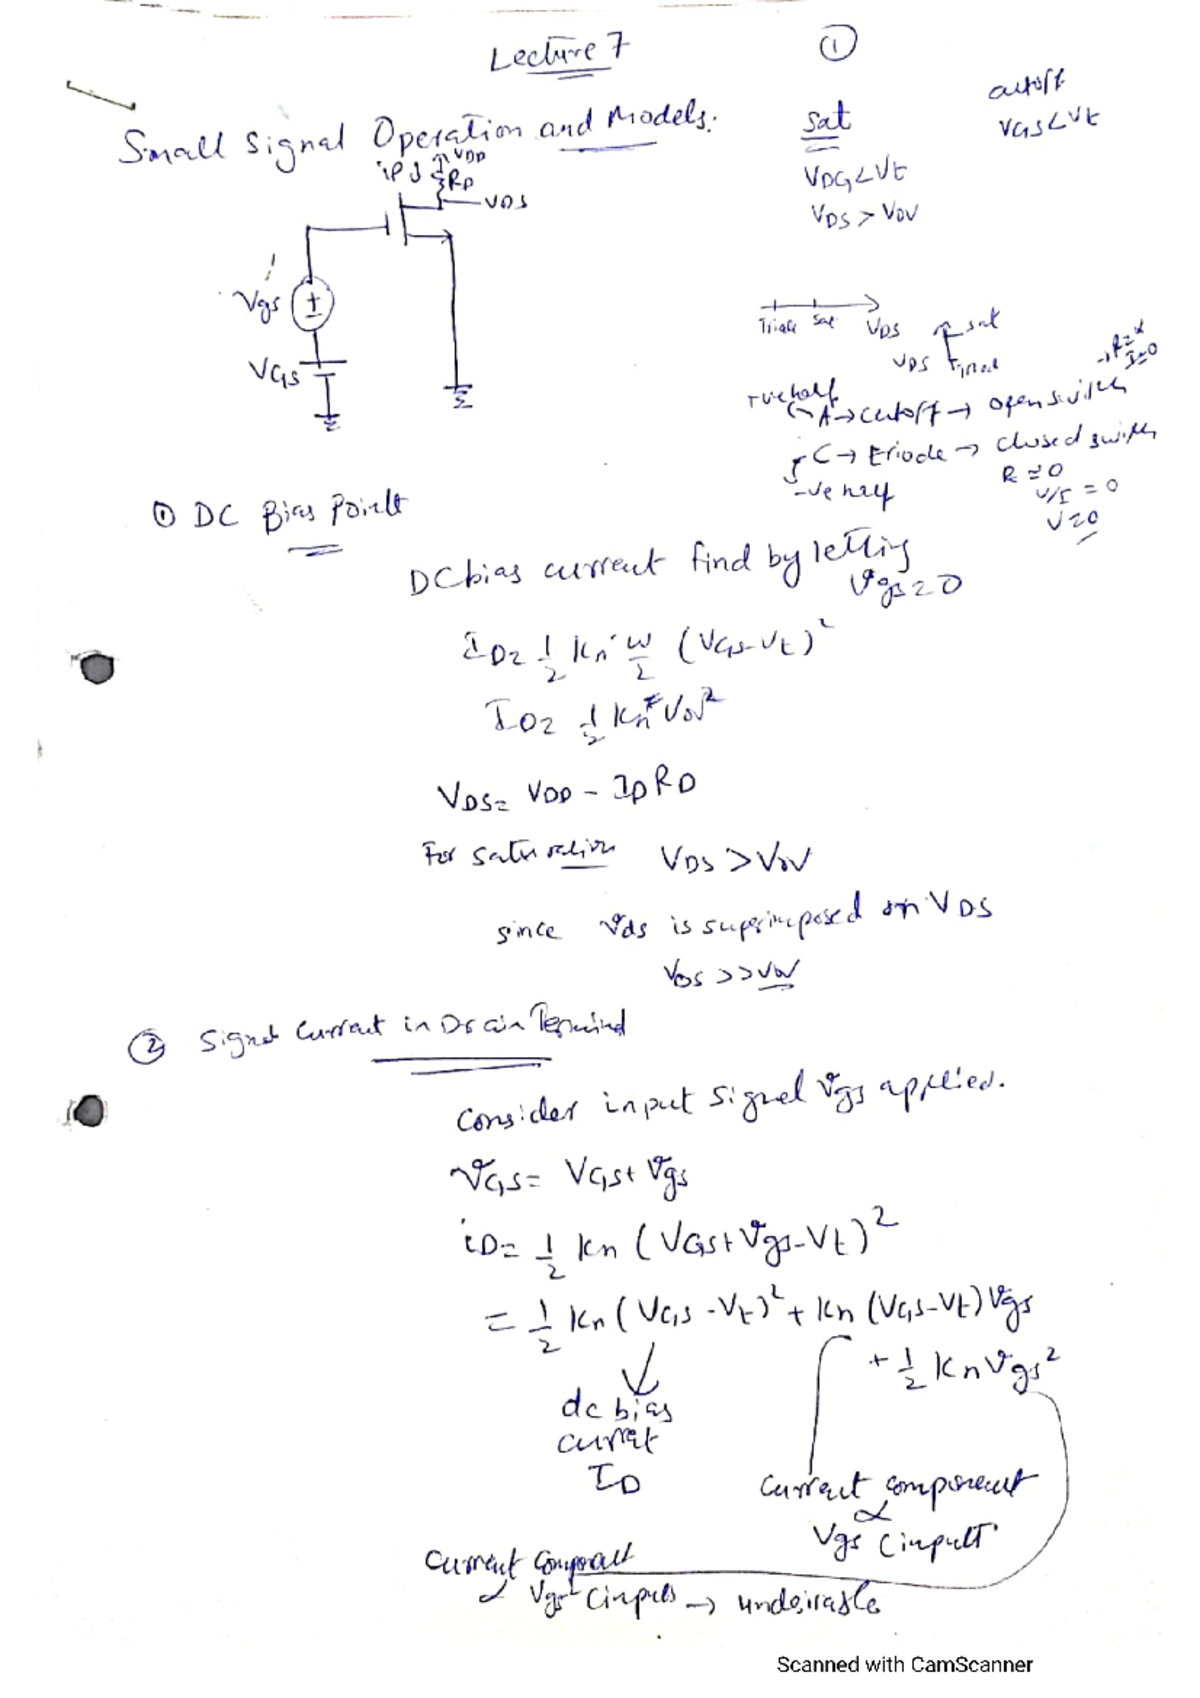 Lecture 7
①
Small Signal Operation and Models.
Sat
VDG<Vt
VDS > VOV
cutoff
VGS<Vt
iD ↓
VDD
RD
VDS
Vgs
VGS
Triode Sat VDS
sat
VDS
→ cutoff → open switch
C → triode → closed switch
-ve half
R = 0
V/I = 0
V=0
① DC Bias Point
DC bias current find by letting
vgs = 0
ID = 1/2 kn' W/L (VGS-Vt)²
ID = 1/2 kn VOV²
VDS = VDD - IDRD
For saturation VDS > VOV
since vds is superimposed on VDS
VDS >> VOV
② Signal Current in Drain Terminal
Consider input signal vgs applied.
vGS = VGS + vgs
iD = 1/2 kn (VGS + vgs - Vt)²
= 1/2 kn (VGS - Vt)² + kn (VGS - Vt) vgs
+ 1/2 kn vgs²
dc bias
current
ID
Current component
∝
Vgs (input)
Current component
∝ Vgs² (input) → undesirable
Scanned with CamScanner